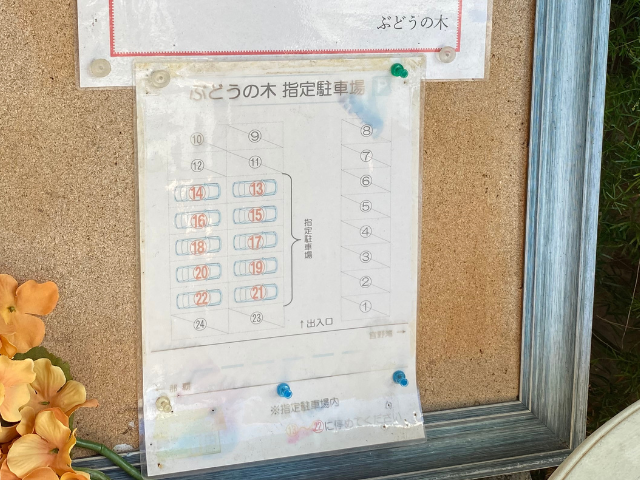 ぶどうの木
ぶどうの木 指定駐車場 P
⑩ ⑨ ⑧
⑫ ⑪ ⑦
⑭ ⑬ ⑥
⑯ ⑮ ⑤
⑱ ⑰ ④
⑳ ⑲ ③
㉒ ㉑ ②
㉔ ㉓ ①
指定駐車場
↑出入口
※指定駐車場内
㉒に停めてください